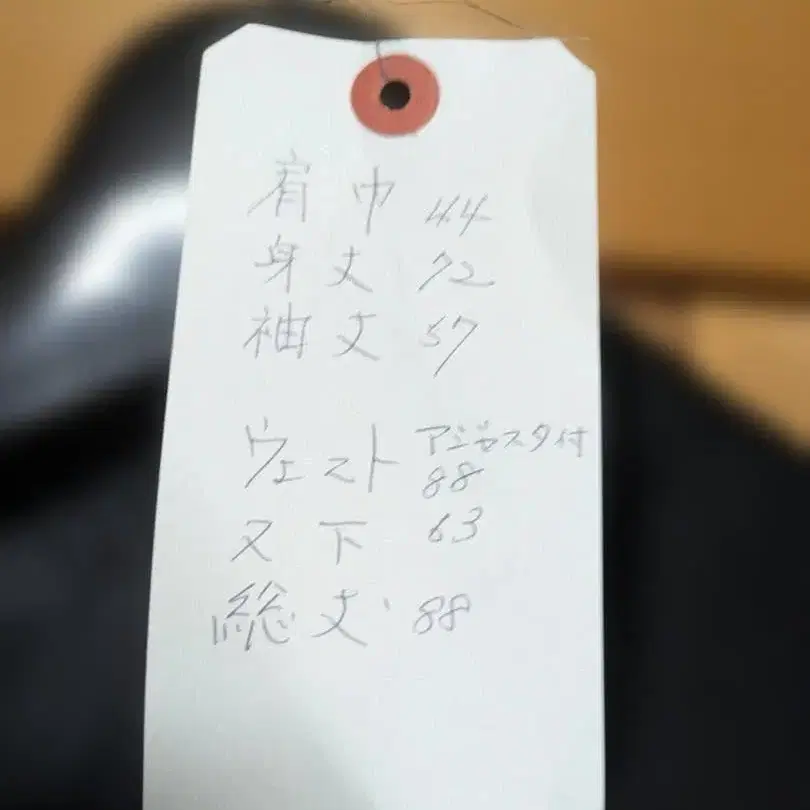 肩巾 44
身丈 72
袖丈 57
ウェスト アジャスタ付
88
又下 63
総丈 88